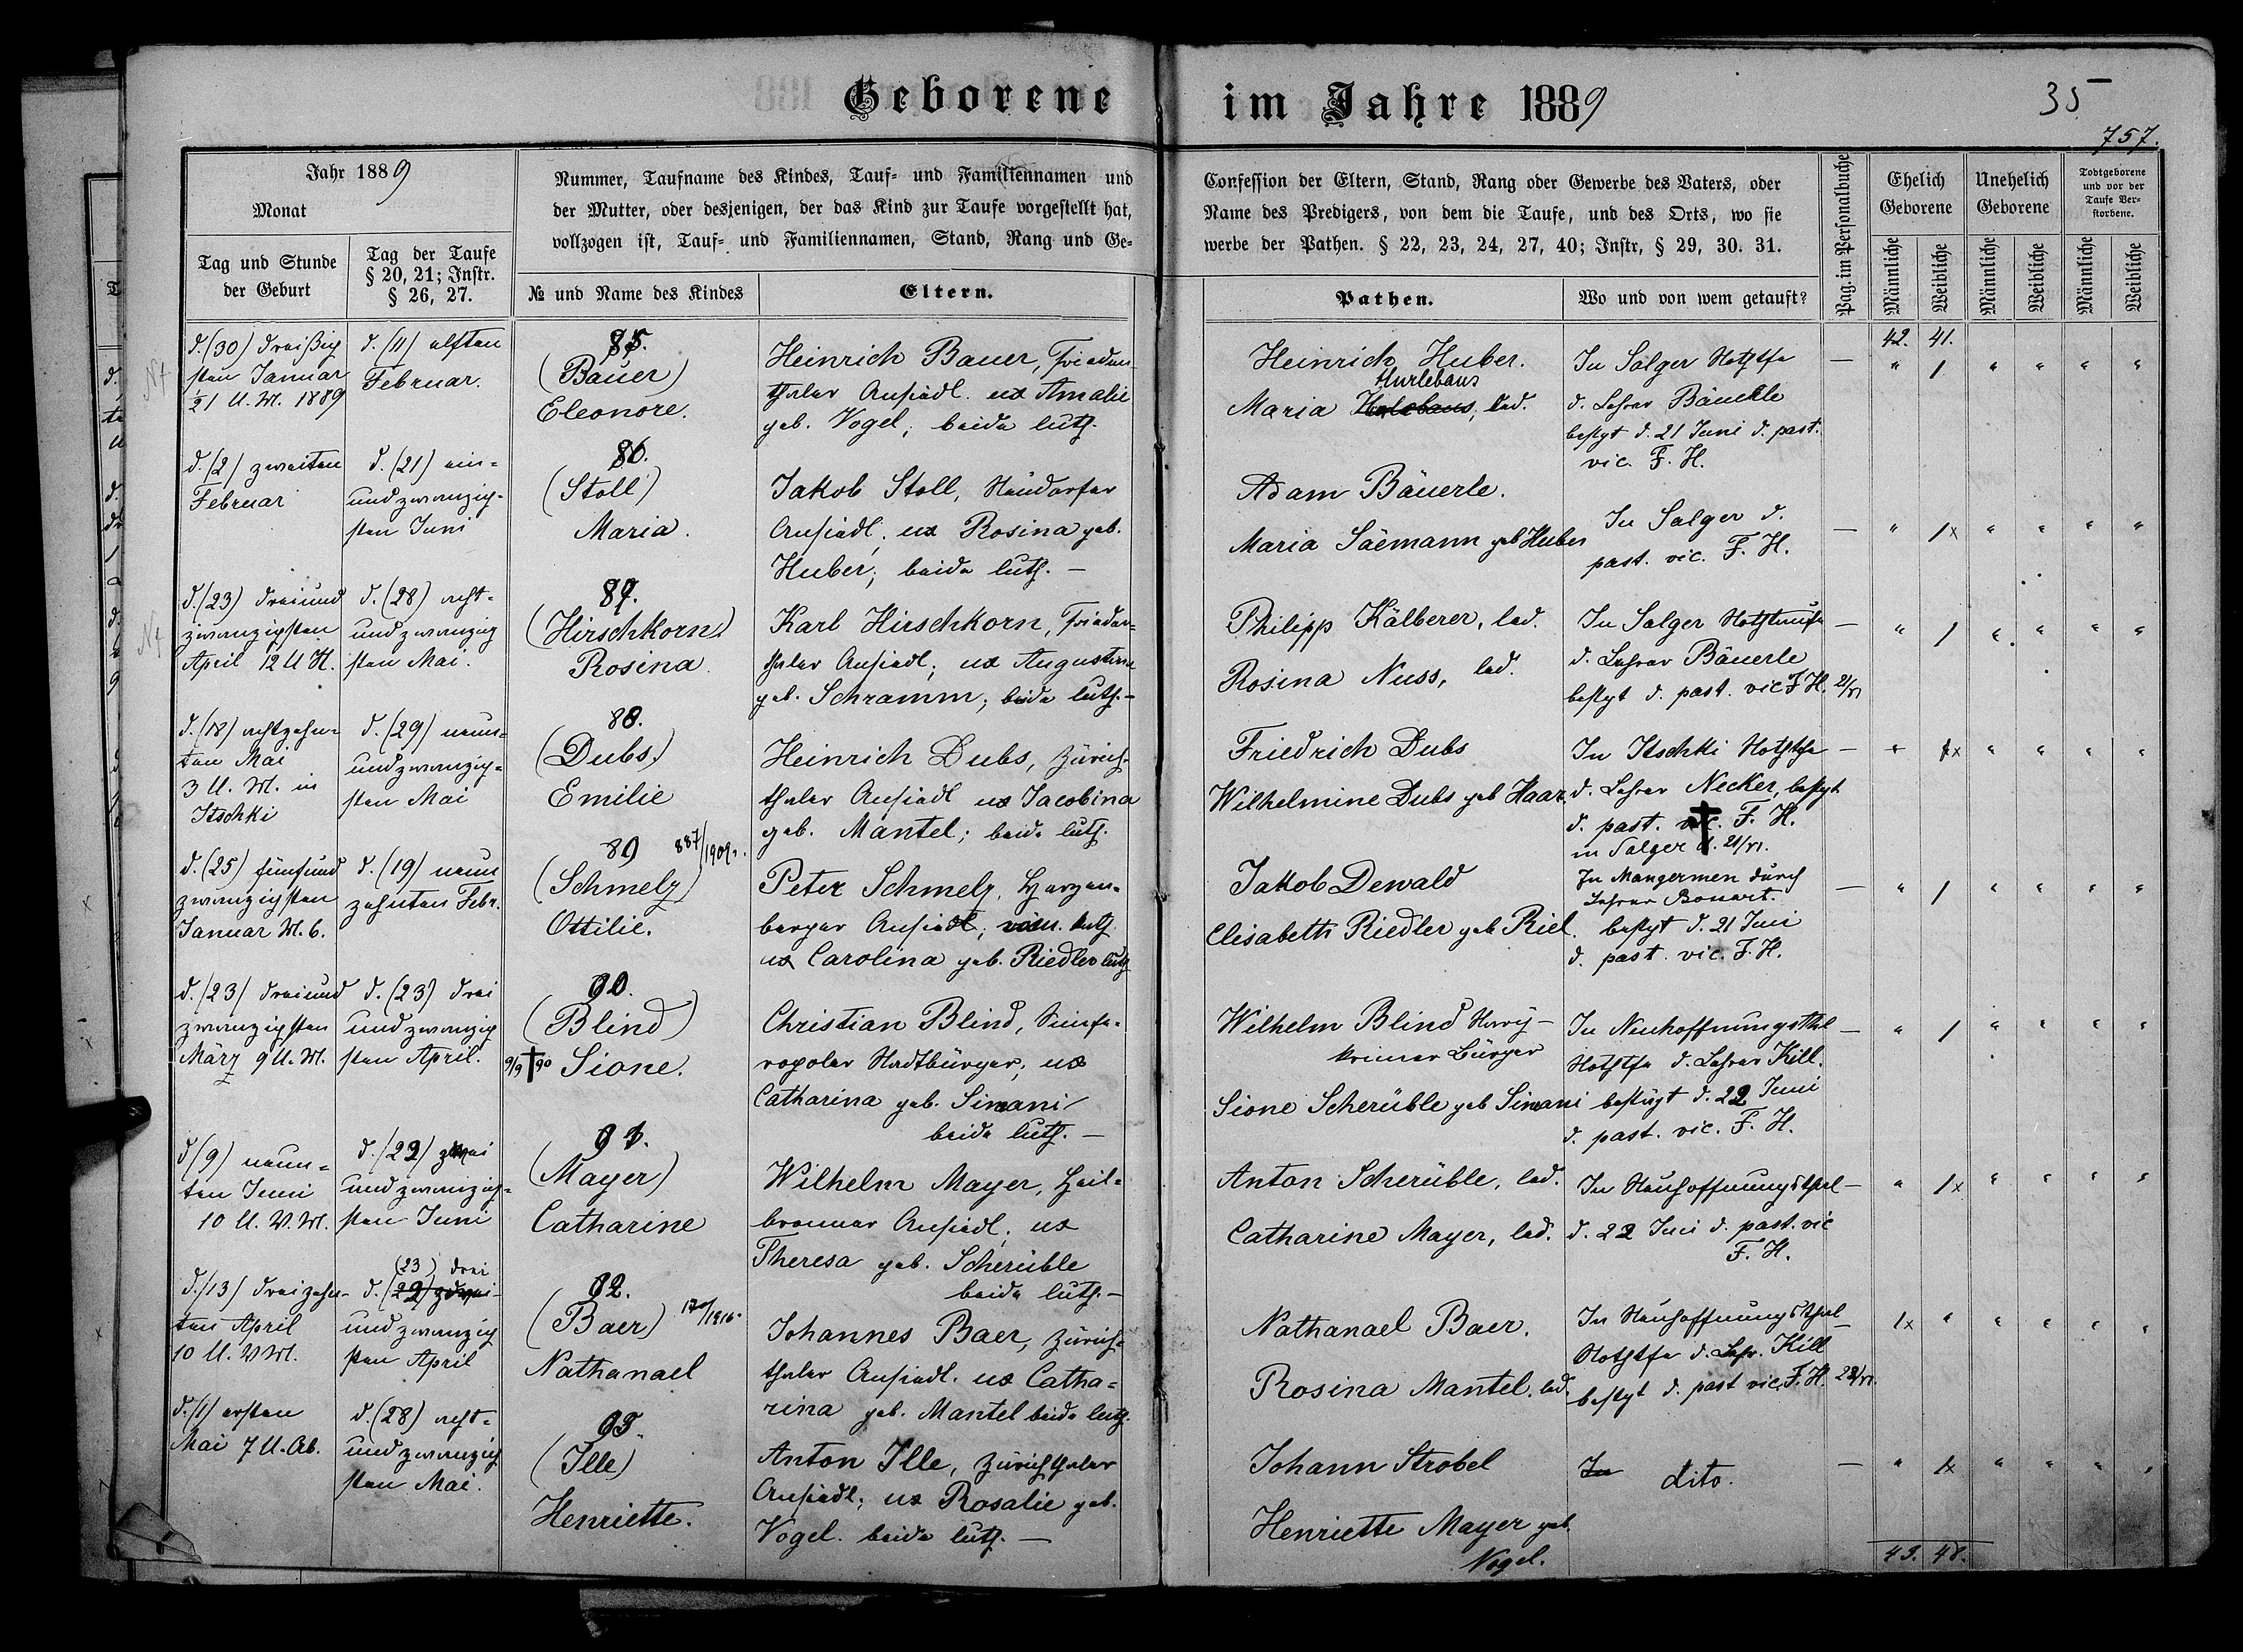 Geborene im Jahre 1889
35
757.
Jahr 1889
Monat
Tag und Stunde
der Geburt
Tag der Taufe
§ 20, 21; Instr.
§ 26, 27.
Nummer, Taufname des Kindes, Tauf- und Familiennamen und
der Mutter, oder desjenigen, der das Kind zur Taufe vorgestellt hat,
vollzogen ist, Tauf- und Familiennamen, Stand, Rang und Ge-
№ und Name des Kindes
Eltern.
Confession der Eltern, Stand, Rang oder Gewerbe des Vaters, oder
Name des Predigers, von dem die Taufe, und des Orts, wo sie
werbe der Pathen. § 22, 23, 24, 27, 40; Instr, § 29, 30. 31.
Pathen.
Wo und von wem getauft?
Pag. im Personalbuche
Ehelich
Geborene
Unehelich
Geborene
Todtgeborene
und vor der
Taufe Ver-
storbene.
Männliche
Weibliche
Männliche
Weibliche
Männliche
Weibliche
42. 41.
d. (30) dreißig
sten Januar
½1 U. M. 1889
d. (11) elften
Februar.
85.
(Bauer)
Eleonore.
Heinrich Bauer, Frieden
thaler Ansiedl. ux Amalie
geb. Vogel; beide luth.
Heinrich Huber.
Hurlebaus
Maria Hurlebaus, led.
In Salger Nothtfe
d. Lehrer Bäuerle
bestgt d. 21 Juni d. past.
vic. F. H.
d. (2) zweiten
Februar
d. (21) ein-
undzwanzig-
sten Juni
86.
(Stoll)
Maria.
Jakob Stoll, Neudorfer
Ansiedl. ux Rosina geb.
Huber; beide luth. —
Adam Bäuerle.
Maria Säemann geb Huber
In Salger d.
past. vic. F. H.
d. (23) dreiund
zwanzigsten
April 12 U N.
d. (28) acht-
undzwanzig
sten Mai.
87.
(Hirschkorn)
Rosina.
Karl Hirschkorn, Frieden-
thaler Ansiedl; ux Augustina
geb. Schramm; beide luth. —
Philipp Kälberer, led.
Rosina Nuss, led.
In Salger Nothtaufe
d. Lehrer Bäuerle
bestgt d. past. vic F H. 21/VI
d. (18) achtzehn-
ten Mai
3 U. M. in
Itschki
d. (29) neun-
undzwanzig-
sten Mai
88.
(Dubs)
Emilie
Heinrich Dubs, Zürich-
thaler Ansiedl ux Jacobina
geb. Mantel; beide luth.
Friedrich Dubs
Wilhelmine Dubs geb Haar.
In Itschki Nothtfe
d. Lehrer Necker, bestgt
d. past. vic. F. H.
in Salger d. 21/VI.
d. (25) fünfund
zwanzigsten
Januar M. 6.
d. (19) neun
zehnten Febr.
89 887/1909.
(Schmelz)
Ottilie.
Peter Schmelz, Herzen-
berger Ansiedl; luth
ux Carolina geb. Riedler luth
Jakob Dewald
Elisabeth Riedler geb Riel.
In Mangermen durch
Lehrer Bonart.
bestgt d. 21 Juni
d. past. vic. F. H.
d. (23) dreiund
zwanzigsten
März 9 U. M.
d. (23) drei
undzwanzig
sten April.
90.
(Blind)
9/9 † 90 Sione.
Christian Blind, Simfe-
ropoler Stadtbürger, ux
Catharina geb. Simani
beide luth. —
Wilhelm Blind
Bürger
Sione Scherüble geb Simani
In Neuhoffnungsthl
Nothtfe d. Lehrer Kill.
bestügt d. 22 Juni
d. past. vic. F. H.
d (9) neun-
ten Juni
10 U. V. M.
d. (22) zwei
undzwanzig-
sten Juni
91.
(Mayer)
Catharine
Wilhelm Mayer, Heil-
bronner Ansiedl. ux
Theresa geb. Scherüble
beide luth. —
Anton Scherüble, led.
Catharine Mayer, led.
In Neuhoffnungsthal
d. 22 Juni d. past. vic
F. H.
d. (13) dreizehn-
ten April
10 U. V M.
(23) drei
d. (22) zwei-
undzwanzig
sten April
92.
(Baer) 170/1916.
Nathanael
Johannes Baer, Zürich-
thaler Ansiedl. ux Catha-
rina geb. Mantel beide luth.
Nathanael Baer.
Rosina Mantel. led.
In Neuhoffnungsthal
Nothtfe d. Lehr. Kill
bestgt d. past vic. F. H. 22/VI.
d. (1) ersten
Mai 7 U. Ab.
d. (28) acht-
undzwanzig
sten Mai.
93.
(Ille)
Henriette.
Anton Ille, Zürichthaler
Ansiedl; ux Rosalie geb.
Vogel. beide luth. —
Johann Strobel
Henriette Mayer geb.
Vogel.
In dito.
43. 48.